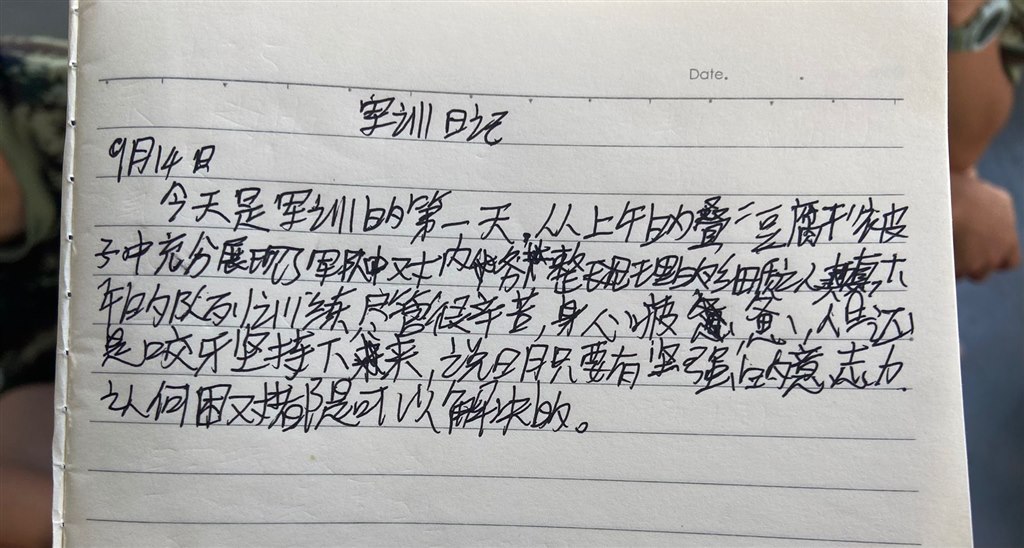 Date.
军训日记
9月14日
今天是军训的第一天,从上午的叠"豆腐块"被
子中充分展现了军队中对内务整理的细腻认真,下
午的队列训练尽管很辛苦,身心疲惫,但还
是咬牙坚持下来,说明只要有坚强的意志力
认何困难都是可以解决的。